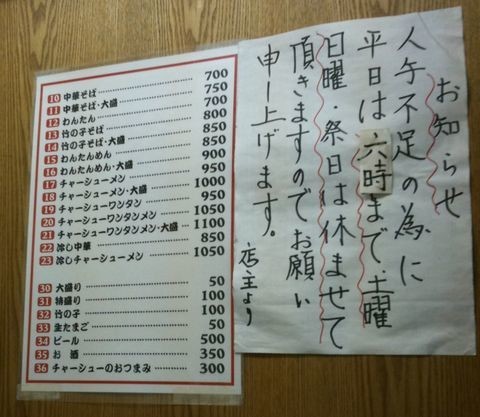 10 中華そば 700
11 中華そば・大盛 750
12 わんたん 700
13 竹の子そば 800
14 竹の子そば・大盛 850
15 わんたんめん 850
16 わんたんめん・大盛 900
17 チャーシューメン 950
18 チャーシューメン・大盛 1000
19 チャーシューワンタン 950
20 チャーシューワンタンメン 1050
21 チャーシューワンタンメン・大盛 1100
22 冷し中華 850
23 冷しチャーシューメン 1050
30 大盛り 50
31 特盛り 100
32 竹の子 100
33 生たまご 50
34 ビール 500
35 お酒 350
36 チャーシューのおつまみ 300
お知らせ
人手不足の為に
平日は六時まで土曜
日曜・祭日は休ませて
頂きますのでお願い
申し上げます。
店主より